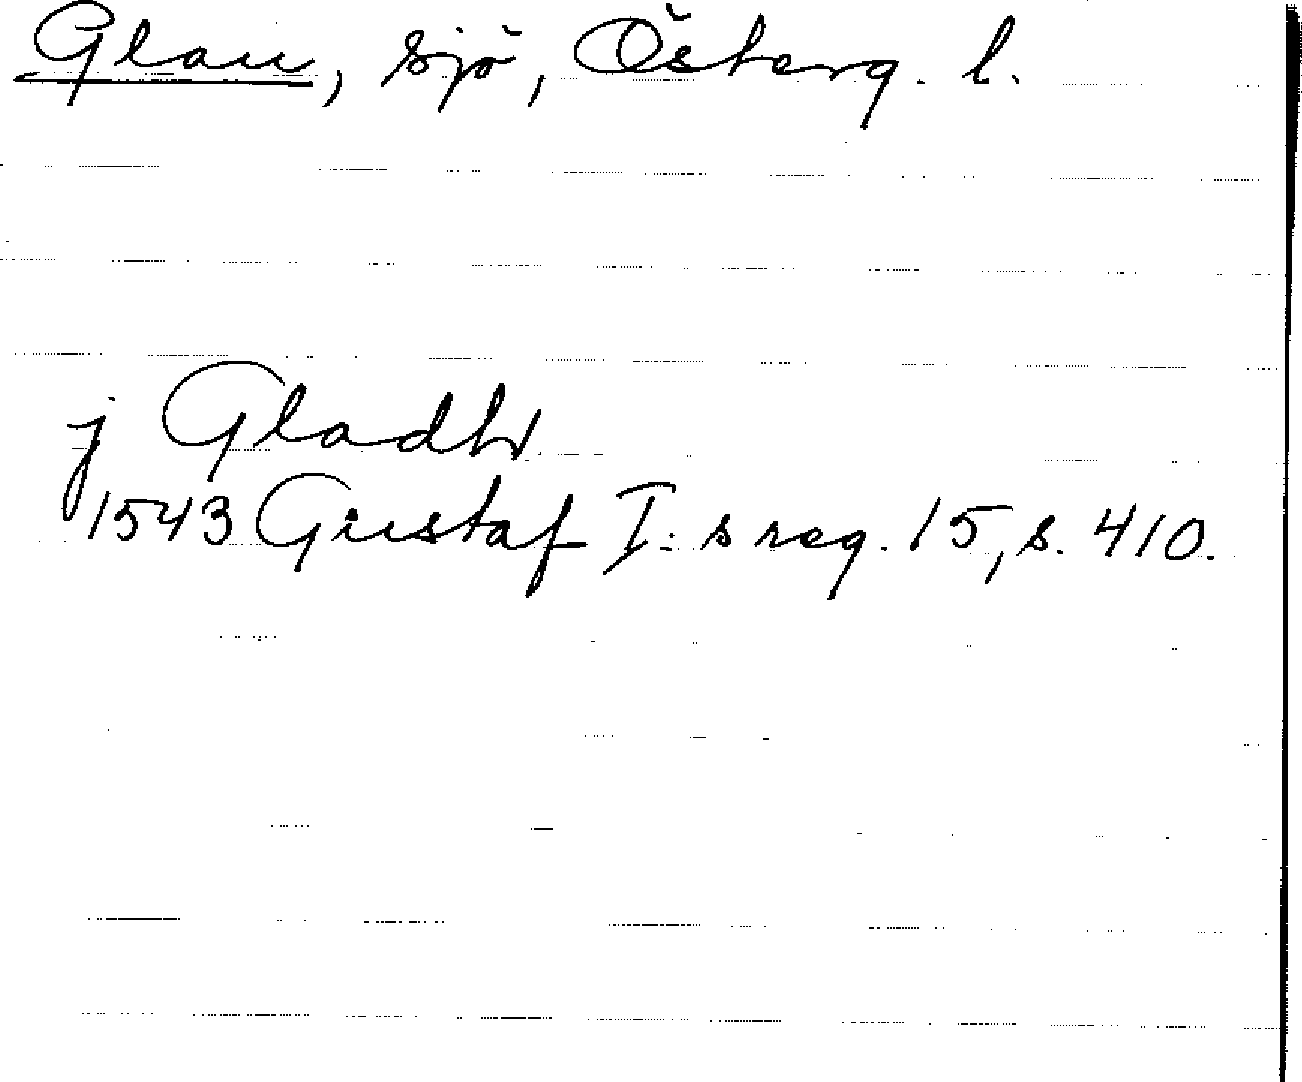 Glan, sjö, Österg. l.
j Gladhr
1543 Gustaf I:s reg. 15, s. 410.